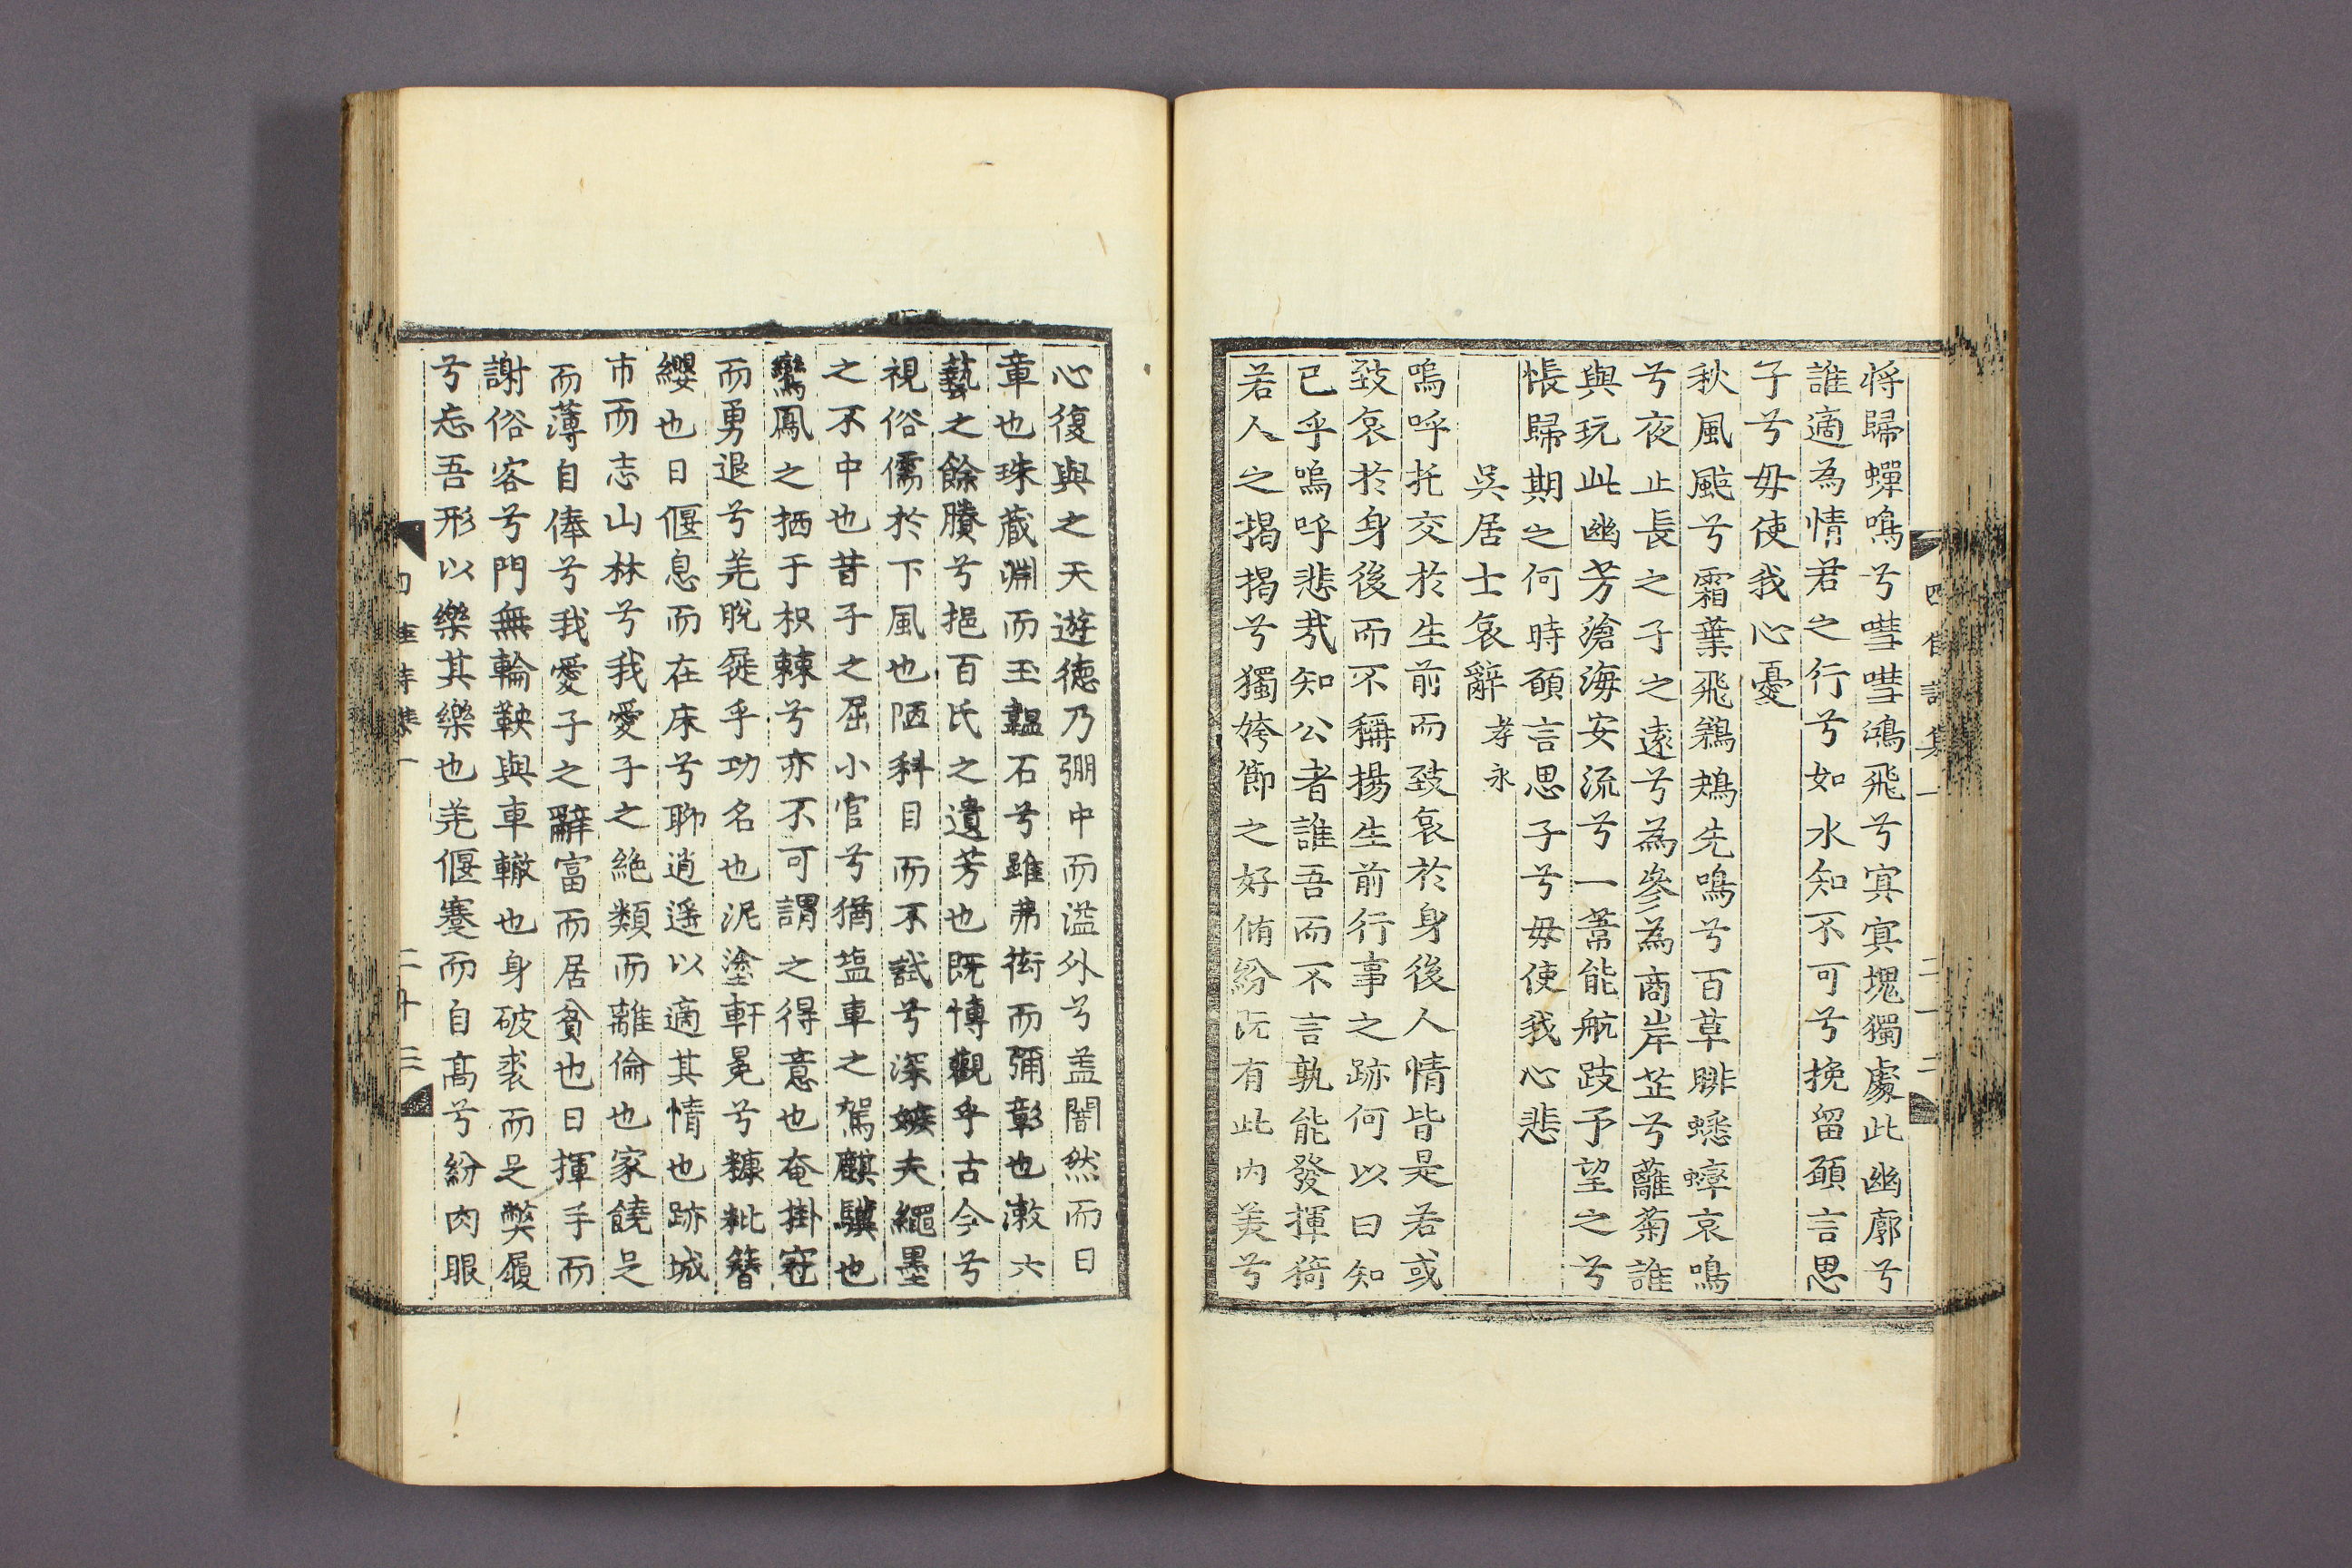 将歸蟬鳴兮嘒嘒鴻飛兮㝠㝠塊獨處此幽廓兮
誰適為情君之行兮如水知不可兮挽留願言思
子兮毋使我心憂
秋風颸兮霜葉飛鵜鴂先鳴兮百草腓蟋蟀哀鳴
兮夜止長之子之遠兮為參為商岸芷兮蘺菊誰
與玩此幽芳滄海安流兮一葦能航跂予望之兮
悵歸期之何時願言思子兮毋使我心悲
吳居士哀辭 孝永
嗚呼托交於生前而致哀於身後人情皆是若或
致哀於身後而不稱揚生前行事之跡何以曰知
已乎嗚呼悲㢤知公者誰吾而不言孰能發揮猗
若人之揭揭兮獨姱節之好脩紛旣有此內美兮
四佳詩集一 二十三
心復與之天遊德乃弸中而溢外兮盖闇然而日
章也珠蔵淵而玉韞石兮雖弗衒而彌彰也漱六
藝之餘賸兮挹百氏之遺芳也既博觀乎古今兮
視俗儒於下風也陋科目而不試兮深嫉夫繩墨
之不中也昔子之屈小官兮猶塩車之駕麒驥也
鸞鳳之栖于枳棘兮亦不可謂之得意也奄掛冠
而勇退兮羌脫屣乎功名也泥塗軒冕兮糠粃簪
纓也日偃息而在床兮聊逍遥以適其情也跡城
市而志山林兮我愛子之絶類而離倫也家饒足
而薄自俸兮我愛子之辭富而居貧也日揮手而
謝俗客兮門無輪鞅與車轍也身破裘而足獘履
兮忘吾形以樂其樂也羌偃蹇而自髙兮紛肉眼